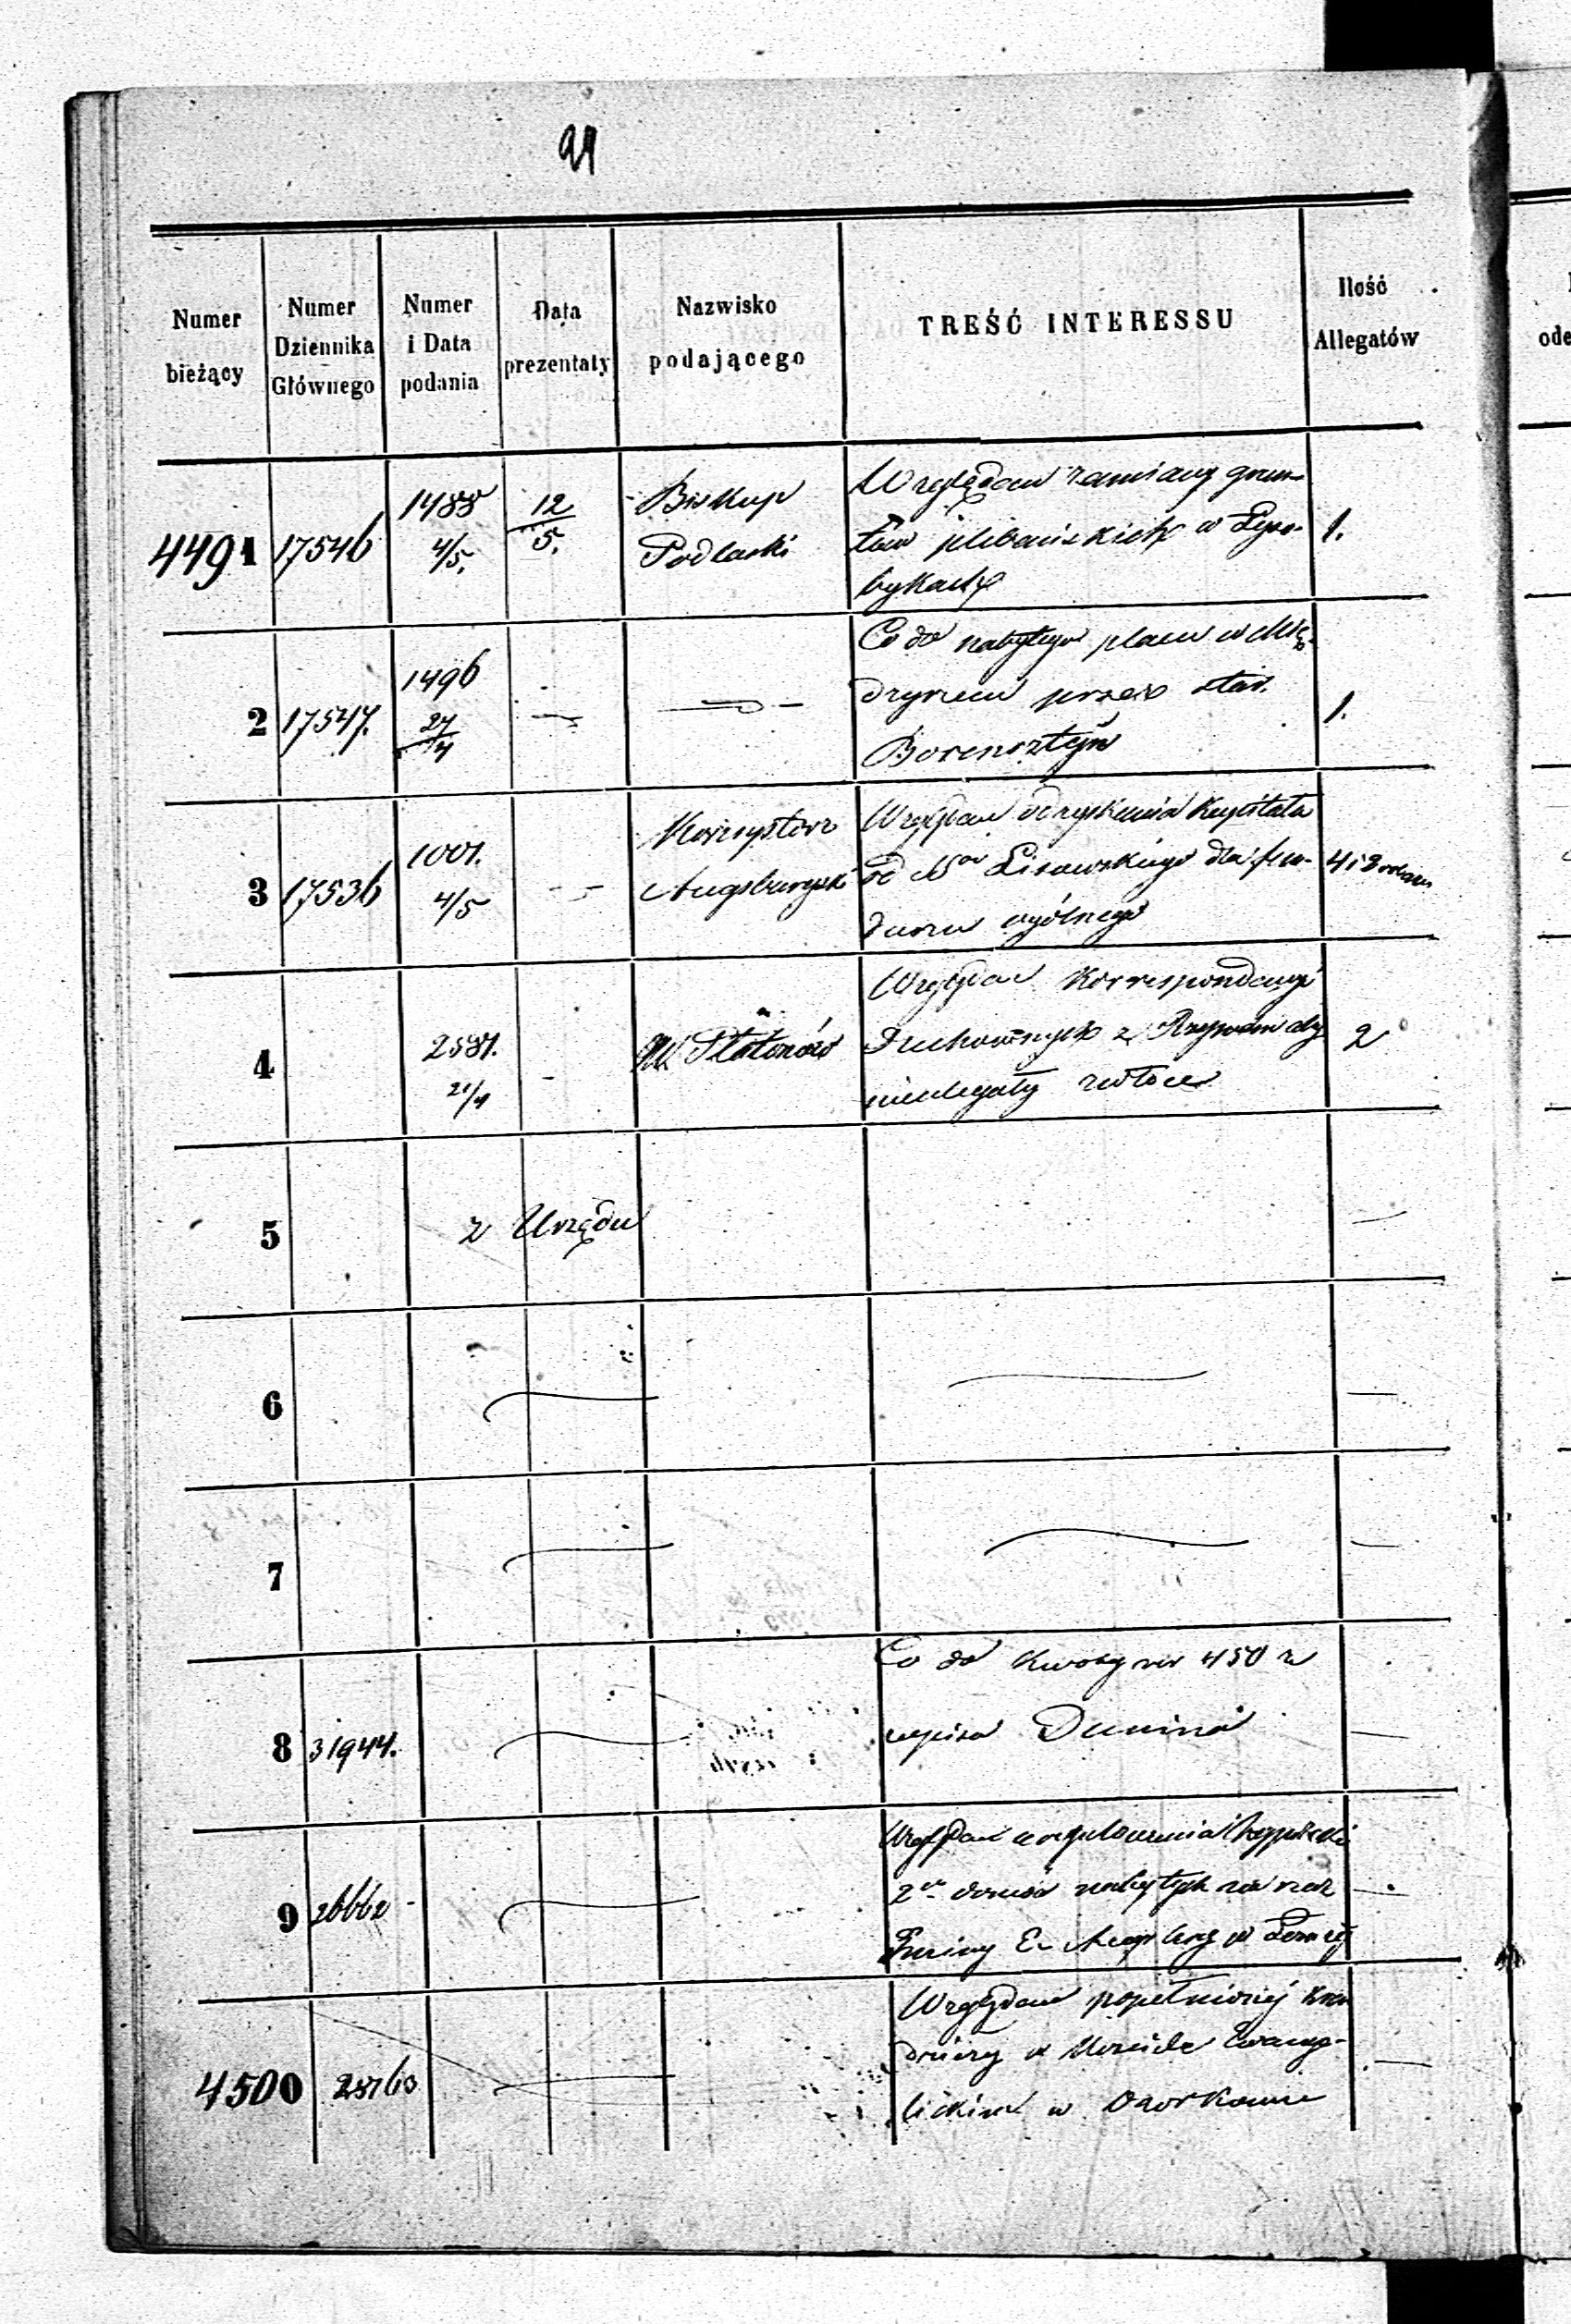 91
Numer bieżący
Numer Dziennika Głównego
Numer i Data podania
Data prezentaty
Nazwisko podającego
TREŚĆ INTERESSU
Ilość Allegatów
4491 17546 1488 4/5. 12/5. Biskup Podlaski
Względem zamiany grun-
tów plebańskich w Łyso-
bykach
1.
2 17547. 1496 27/4 — —
Co do nabytego placu w Mię-
dzyrzecu przez star.
Borensztejn
1.
3 17536 1001. 4/5 — Konsystorz Augsburgski
Względem odzyskania kapitału
od Lisowskiego dla fun-
duszu ogólnego
4 i 3
4 2581. 21/4 - Płatonów
Względem korrespondencyi
Duchownych z Rzymem aby
nieulegały zwłoce
2
5 z Urzędu —
6 — — —
7 — — —
8 31944. —
Co do kwoty rsr 450 z
zapisu Dunina
—
9 —
Względem uregulowania hyppoteki
2ch domów nabytych na rzecz
Gminy Ew Augsburg w Łomży
—
4500 —
Względem popełnionej kra
dzieży w Kościele Ewange-
lickim w Ozorkowie
—